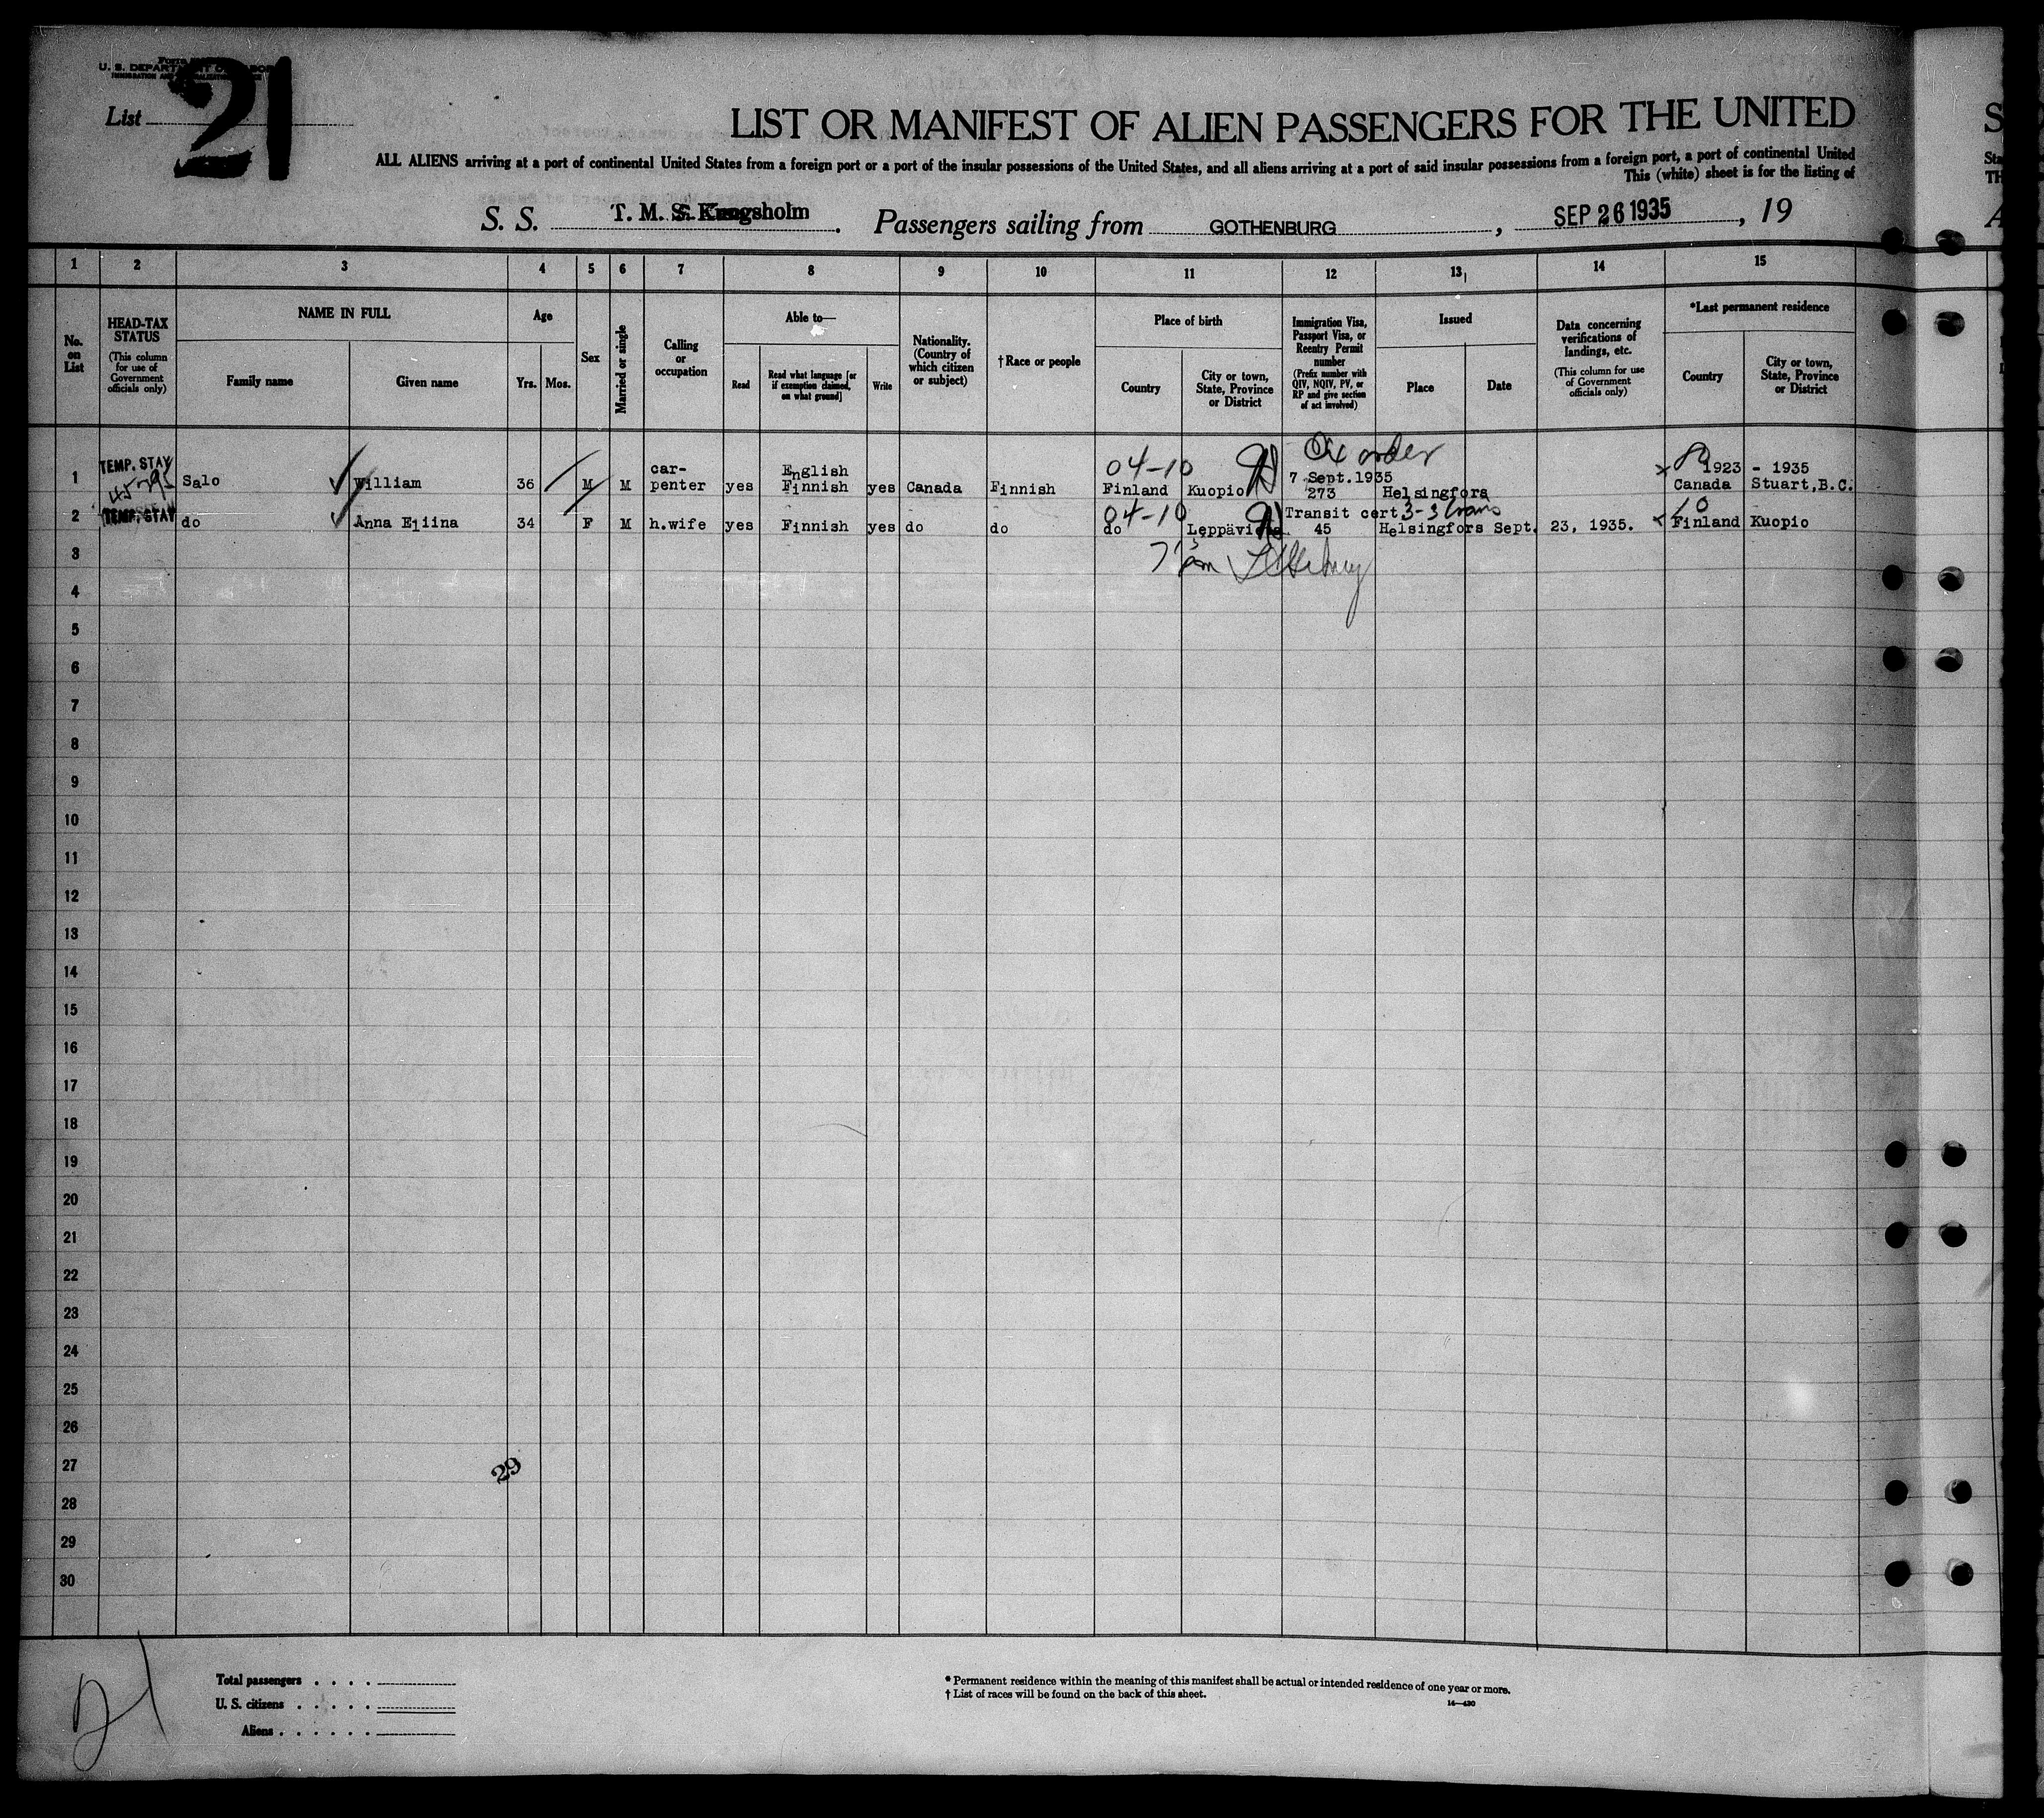 List 21
LIST OR MANIFEST OF ALIEN PASSENGERS FOR THE UNITED
ALL ALIENS arriving at a port of continental United States from a foreign port or a port of the insular possessions of the United States, and all aliens arriving at a port of said insular possessions from a foreign port, a port of continental United
This (white) sheet is for the listing of
S. S. T. M. S. Kungsholm. Passengers sailing from GOTHENBURG, SEP 26 1935, 19
1 2 3 4 5 6 7 8 9 10 11 12 13 14 15
No. on List
HEAD-TAX STATUS
(This column for use of Government officials only)
NAME IN FULL
Family name
Given name
Age
Yrs. Mos.
Sex
Married or single
Calling or occupation
Able to—
Read
Read what language [or if exemption claimed, on what ground]
Write
Nationality. (Country of which citizen or subject)
†Race or people
Place of birth
Country
City or town, State, Province or District
Immigration Visa, Passport Visa, or Reentry Permit number
(Prefix number with QIV, NQIV, PV, or RP and give section of act involved)
Issued
Place
Date
Data concerning verifications of landings, etc.
(This column for use of Government officials only)
*Last permanent residence
Country
City or town, State, Province or District
1 TEMP. STAY Salo William 36 M M car-penter yes English Finnish yes Canada Finnish 04-10 Finland Kuopio order 7 Sept.1935 273 Helsingfors 1923 - 1935 Canada Stuart,B.C.
2 TEMP. STAY do Anna Eliina 34 F M h.wife yes Finnish yes do do 04-10 do Transit cert 3-3 trans 45 Helsingfors Sept. 23, 1935. Finland Kuopio
3
4
5
6
7
8
9
10
11
12
13
14
15
16
17
18
19
20
21
22
23
24
25
26
27
29
28
29
30
21
Total passengers . . . .
U. S. citizens . . . . .
Aliens . . . . . .
* Permanent residence within the meaning of this manifest shall be actual or intended residence of one year or more.
† List of races will be found on the back of this sheet.
14—430